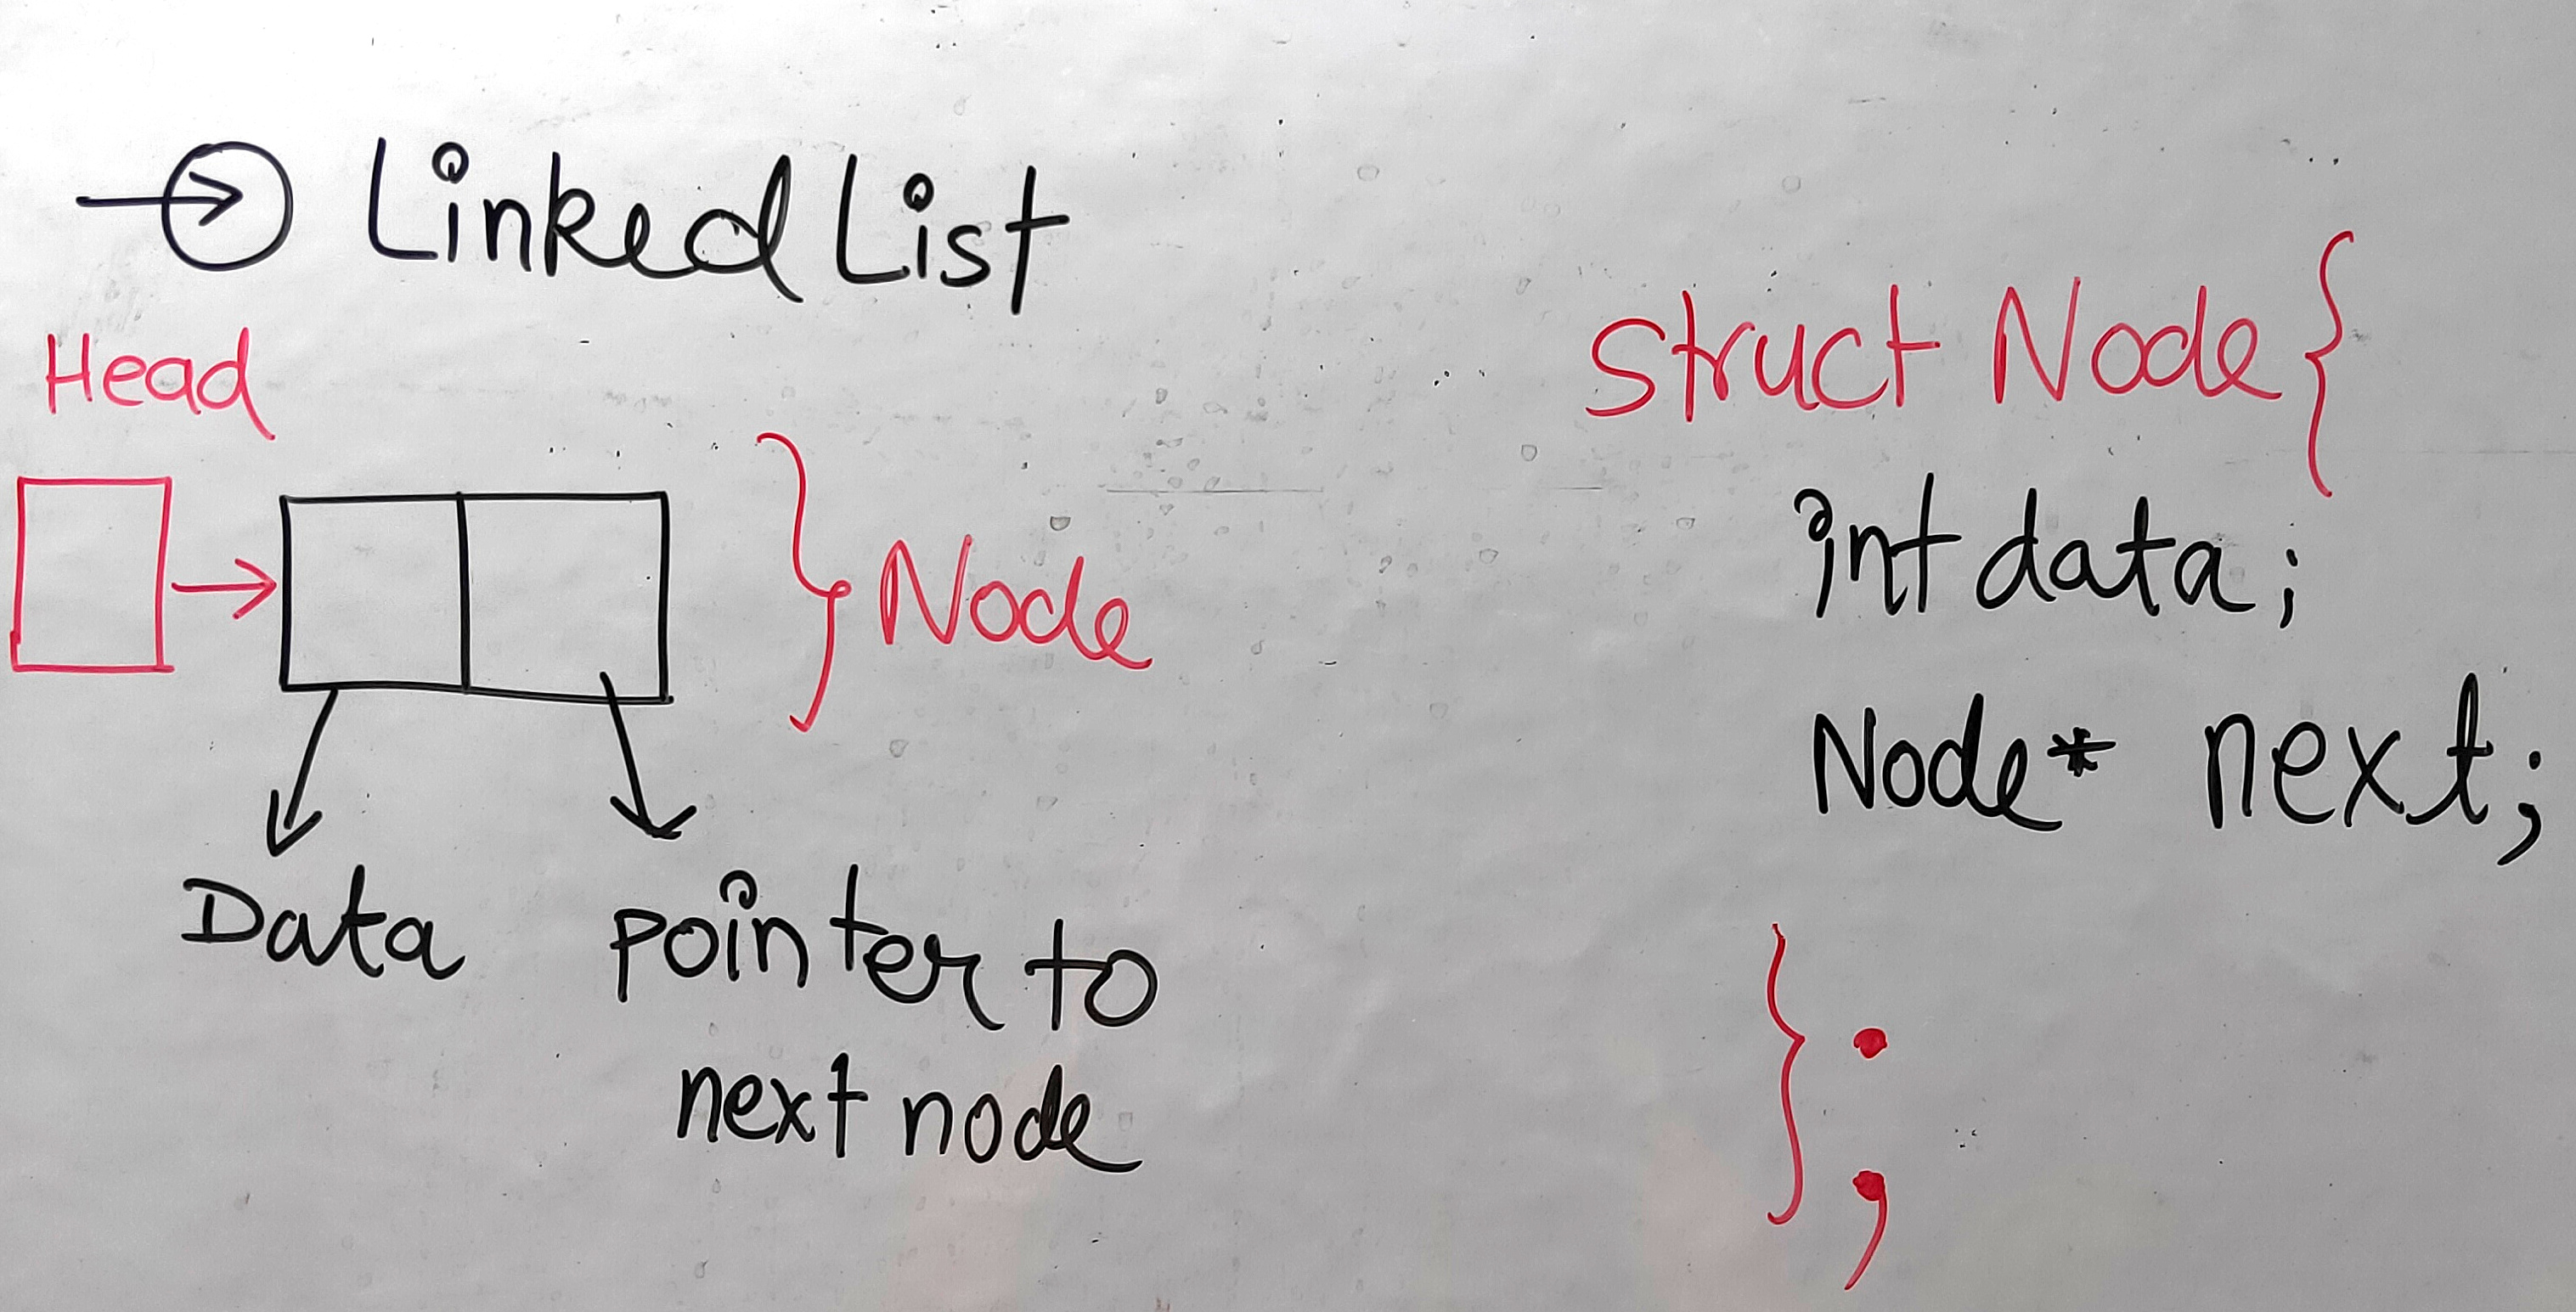 Linked List
Head
Node
Data pointer to
next node
struct Node{
int data;
Node* next;
};